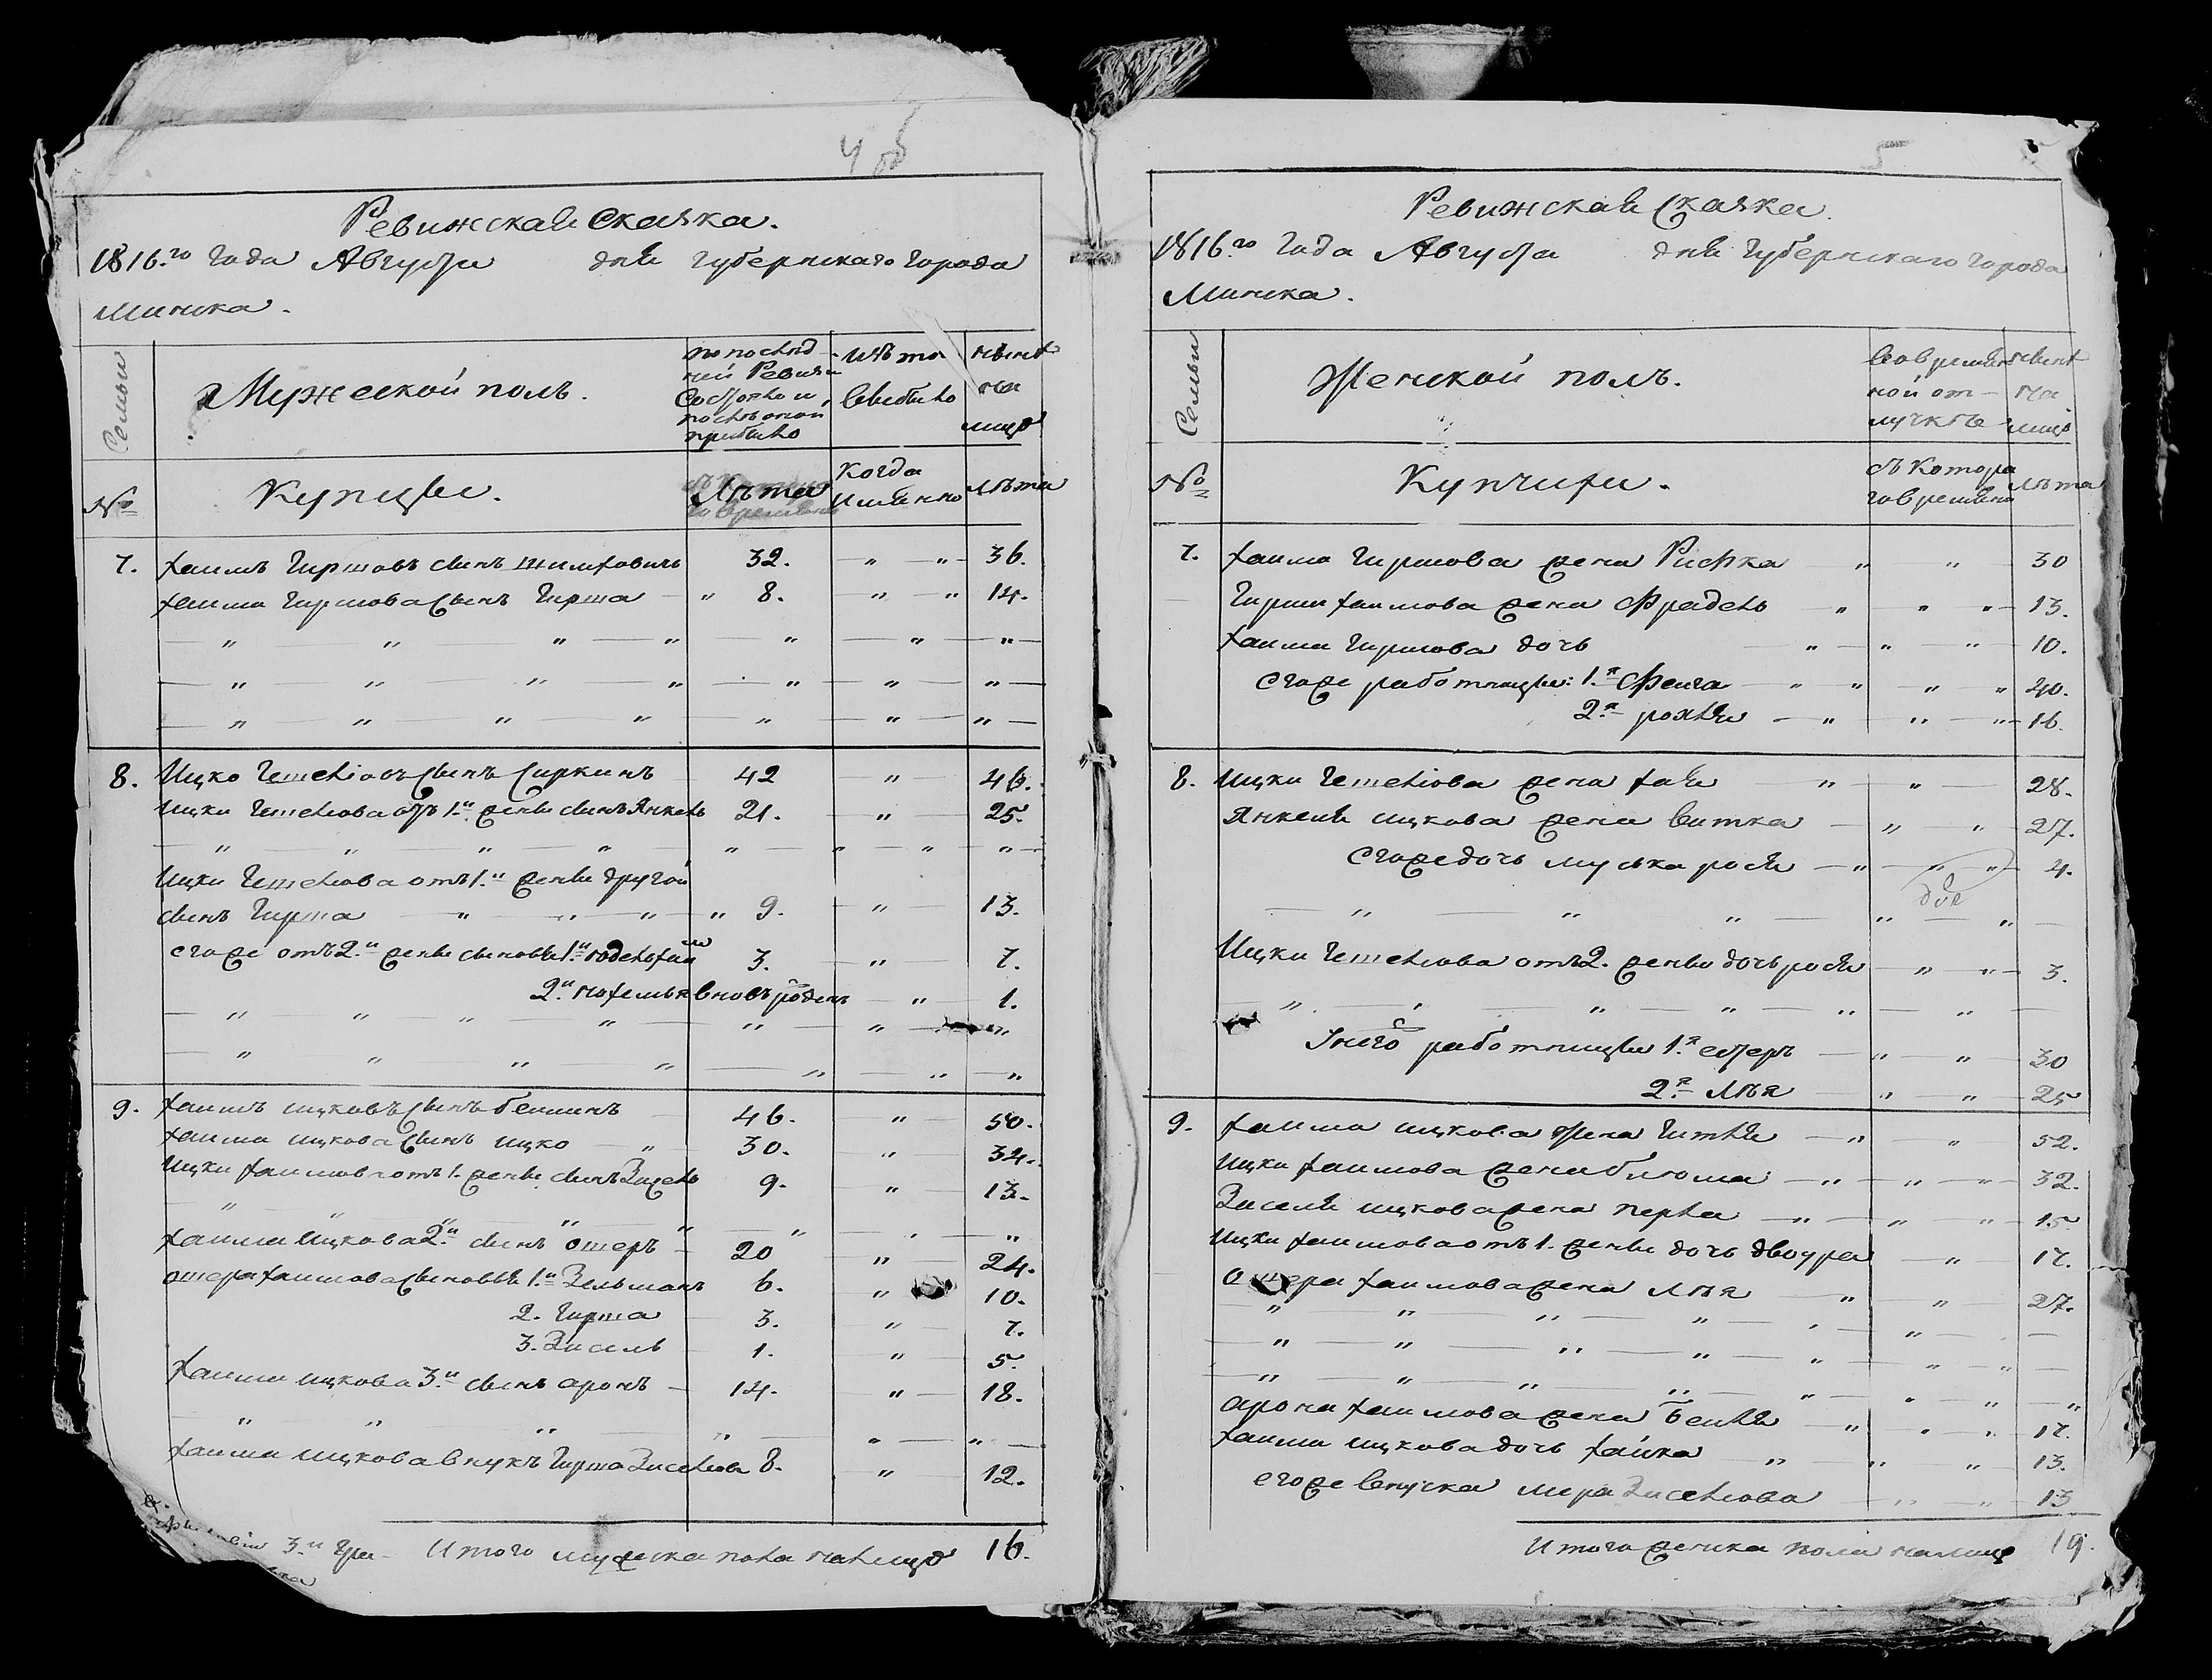 4 об
Ревижская Сказка.
1816.го Года Августа дня Губернскаго Города
Минска.
Семьи
Мужеской полъ.
по послѣд-
ней Ревизи
Состояло и
послѣ оной
прибыло
изъ то
выбыло
нынѣ
на
лицо
№
Купцы.
Лѣта
Когда
Имянно
Лѣта
7. Хаимъ Гиршовъ сынъ 32. " " 36.
Хаима Гиршова Сынъ Гирша " 8. " " 14.
8. Ицко Гешелiовъ Сынъ Сиркинъ 42 " 46.
Ицки Гешелiова отъ 1.й жены сынъ Янкель 21. " 25.
Ицки Гешелiова отъ 1.й жены другой
сынъ Гирша " " " " 9. " 13.
егоже отъ 2.й жены сыновья 1.й 3. " 7.
2.й вновь рожденъ " 1.
9. Хаимъ Ицковъ Сынъ Бенинъ 46. " 50.
Хаима Ицкова Сынъ Ицко " 30. " 34.
Ицки Хаимова отъ 1. жены сынъ Зисель 9. " 13.
Хаима Ицкова 2.й сынъ Ошеръ 20 " 24.
Ошера Хаимова Сыновья 1.й Зельманъ 6. " 10.
2. Гирша 3. " 7.
3. Зисель 1. " 5.
Хаима Ицкова 3.й сынъ Аронъ 14. " 18.
Хаима Ицкова внукъ Гирша Зиселiовъ 8. " 12.
3.й Итого мужеска пола налицо 16.
5
Ревижская Сказка.
1816.го Года Августа дня Губернскаго Города
Минска.
Семьи
Женской полъ.
Во времян
ной от-
лучкѣ
нынѣ
на
лицо
№
Купчихи.
съ Котора
го времяни
Лѣта
7. Хаима Гиршова жена Рисhка " " 30
Гирши Хаимова жена Фрадель " " " 13.
Хаима Гиршова дочь " " " 10.
Егоже работницы: 1.я Фейга " " " " 40.
2.я рохля " " " 16.
8. Ицки Гешелiова жена Хая " " 28.
Янкеля Ицкова жена Витка " " 27.
Егоже дочь Муська рося " " " 4.
Ицки Гешелiова отъ 2. жены дочь рося " " 3.
У него работницы 1.я естеръ " " 30
2.я Лѣя " " 25
9. Хаима Ицкова Жена Гитля " " 52.
Ицки Хаимова жена Блюма " " " 32.
Зиселя Ицкова жена перла " " " 15
Ицки Хаимова отъ 1. жены дочь двоура " 17.
Ошера Хаимова жена Лѣя " " 27.
Арона Хаимова жена Бейля " " " 17.
Хаима Ицкова дочь Хайка " " " 13.
егоже внучка мера Зиселiова " " 13
Итого женска пола налице 19.